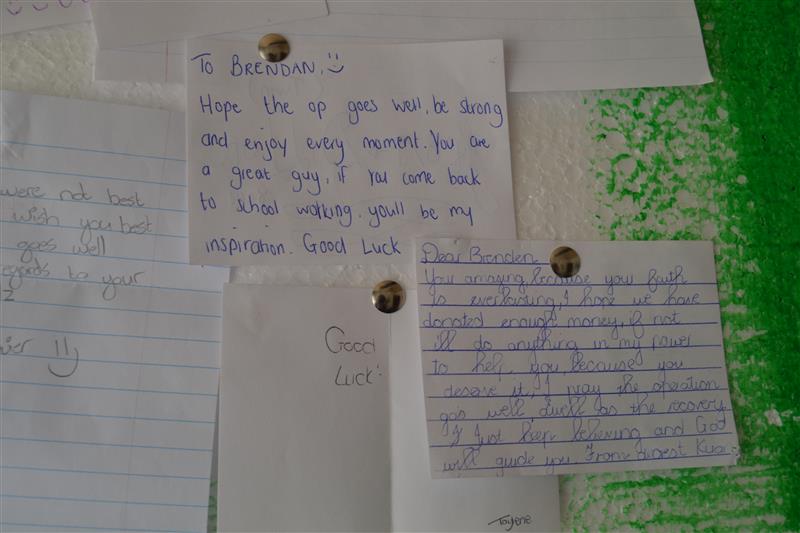 were not best
wish you best
goes well
egards to your
To Brendan, :)
Hope the op goes well, be strong
and enjoy every moment. You are
a great guy, if you come back
to school working, youll be my
inspiration. Good Luck
Good
Luck!
Tayene
Dear Brenden
You amazing because your faith
is everlasting, I hope we have
donated enough money, if not
ill do anything in my power
to help you, because you
deserve it, I pray the operation
goes well, as the recovery
Just keep believing and God
will guide you. From